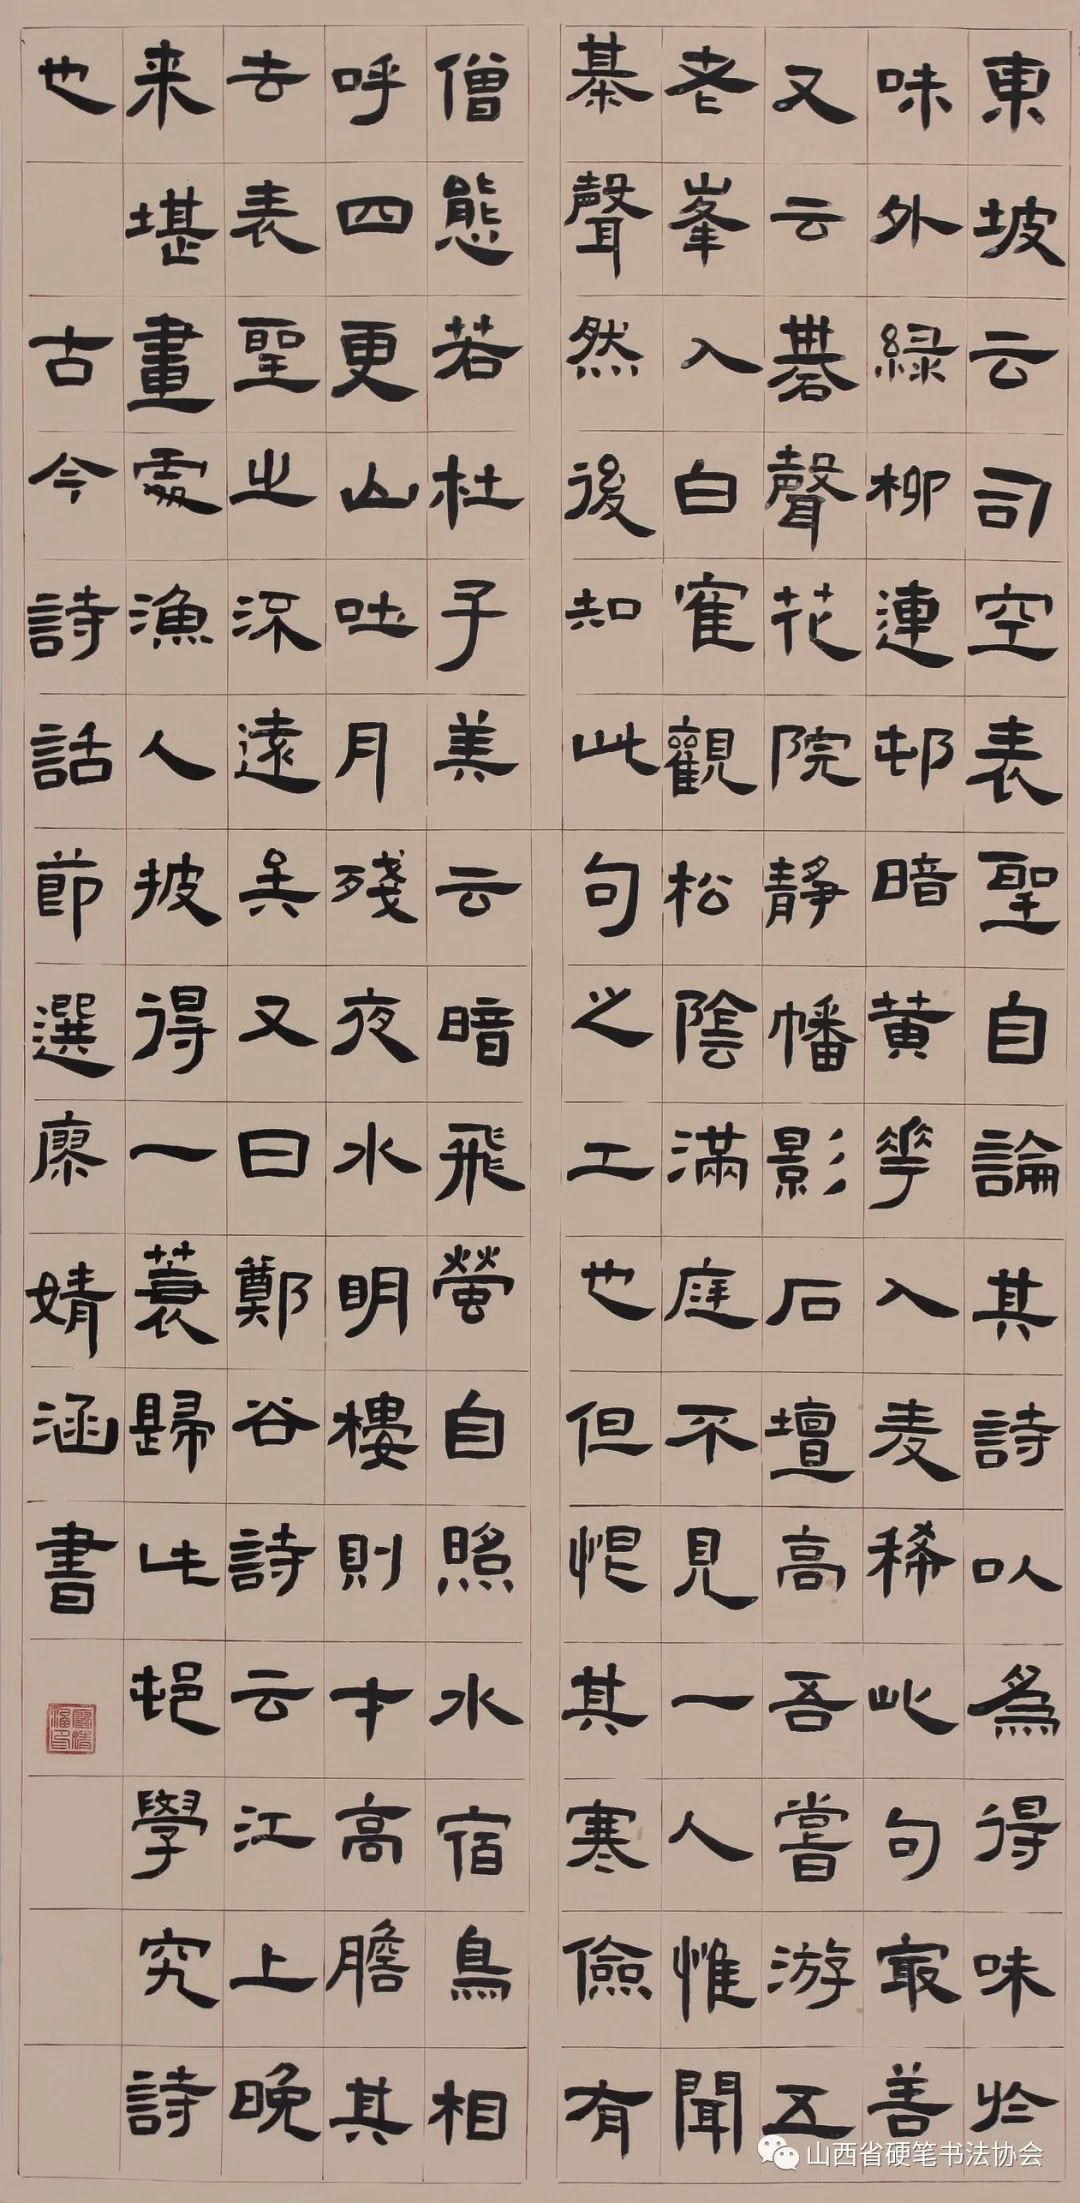 東坡云司空表聖自論其詩以為得味於
味外綠柳連邨暗黃華入麦稀此句冣善
又云碁聲花院靜幡影石壇高吾嘗游五
老峯入白寉觀松陰滿庭不見一人惟聞
棊聲然後知此句之工也但恨其寒儉有
僧態若杜子美云暗飛螢自照水宿鳥相
呼四更山吐月殘夜水明樓則才高膽其
去表聖之流遠矣又曰鄭谷詩云江上晚
来堪畫處漁人披得一蓑歸此邨學究詩
也 古今詩話節選廖婧涵書
廖婧涵印
山西省硬笔书法协会